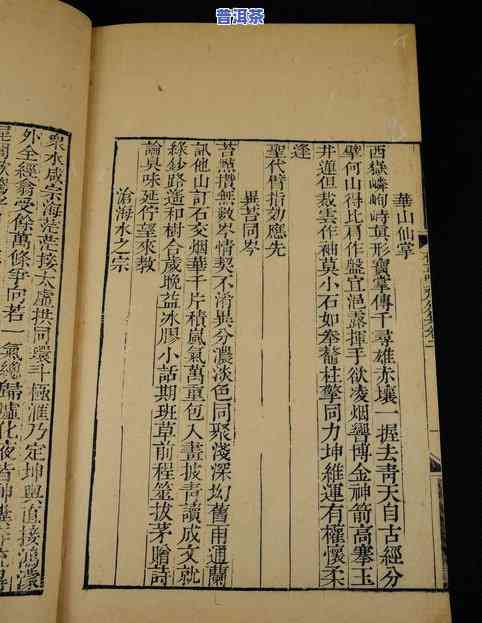 普洱茶
華山仙掌
西嶽嶙峋峙真形寶掌傳千尋雄赤壤一握去青天自古經分
擘何山得比肩作盤宜浥露揮手欲凌烟響博金神箭高搴玉
井蓮但裁雲作袖莫小石如拳鼇柱擎同力坤維運有權懷柔
逢
聖代臂指効應先
異苔同岑
苔點攢無數岑情契不淆異分濃淡色同聚淺深坳舊雨通蘭
訊他山訂石交烟華千片積嵐氣萬重包人畫披青讀成文就
綠鈔路遥和樹合歲晚益冰膠小話期班草前程筮拔茅贈詩
論臭味延佇望來教
滄海水之宗
衆水咸宗海茫茫接太虛拱同環斗極滙乃定坤輿直接鴻濛
外全經翕受餘萬條爭向若一氣總歸墟化液